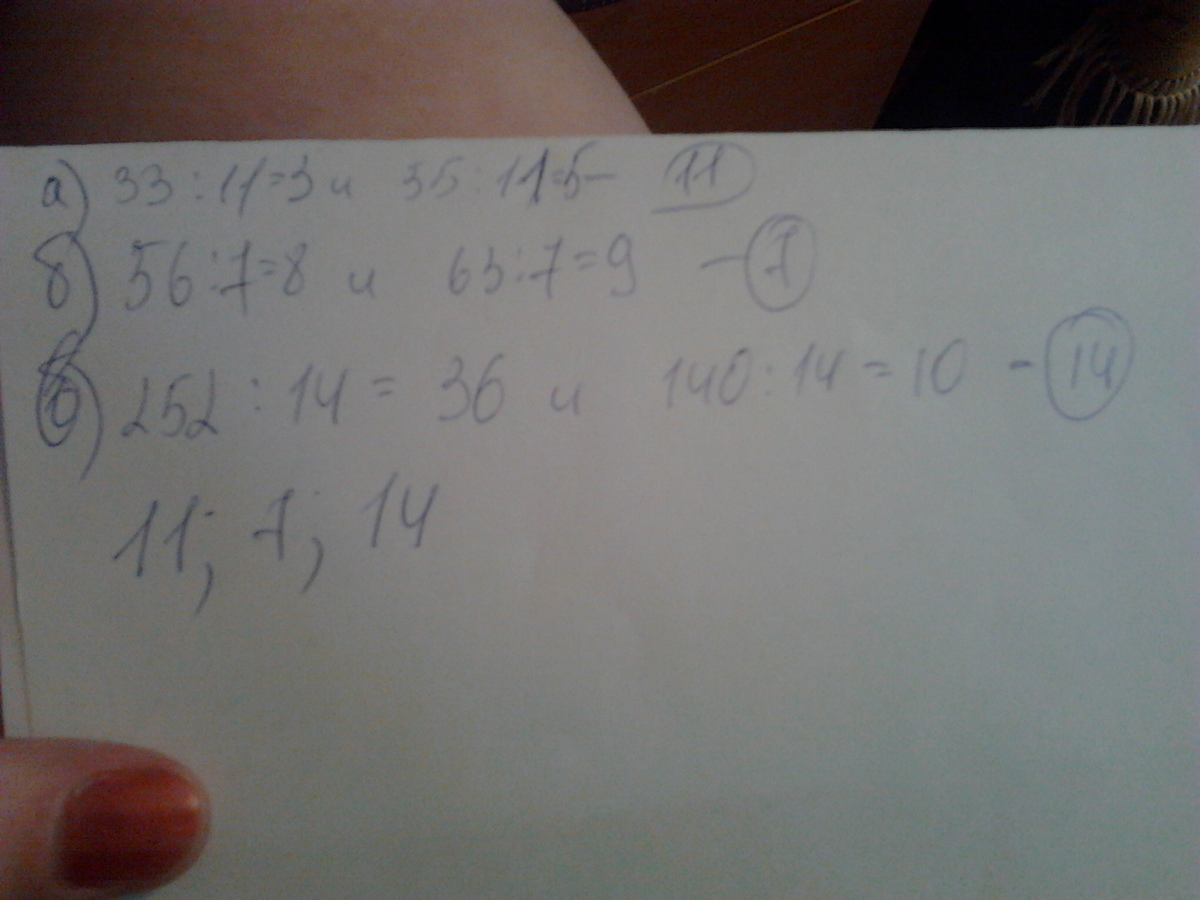 а) 33 : 11 = 3 и 35 : 11 = 5 — 11
б) 56 : 7 = 8 и 63 : 7 = 9 — 7
в) 252 : 14 = 36 и 140 : 14 = 10 - 14
11; 7; 14